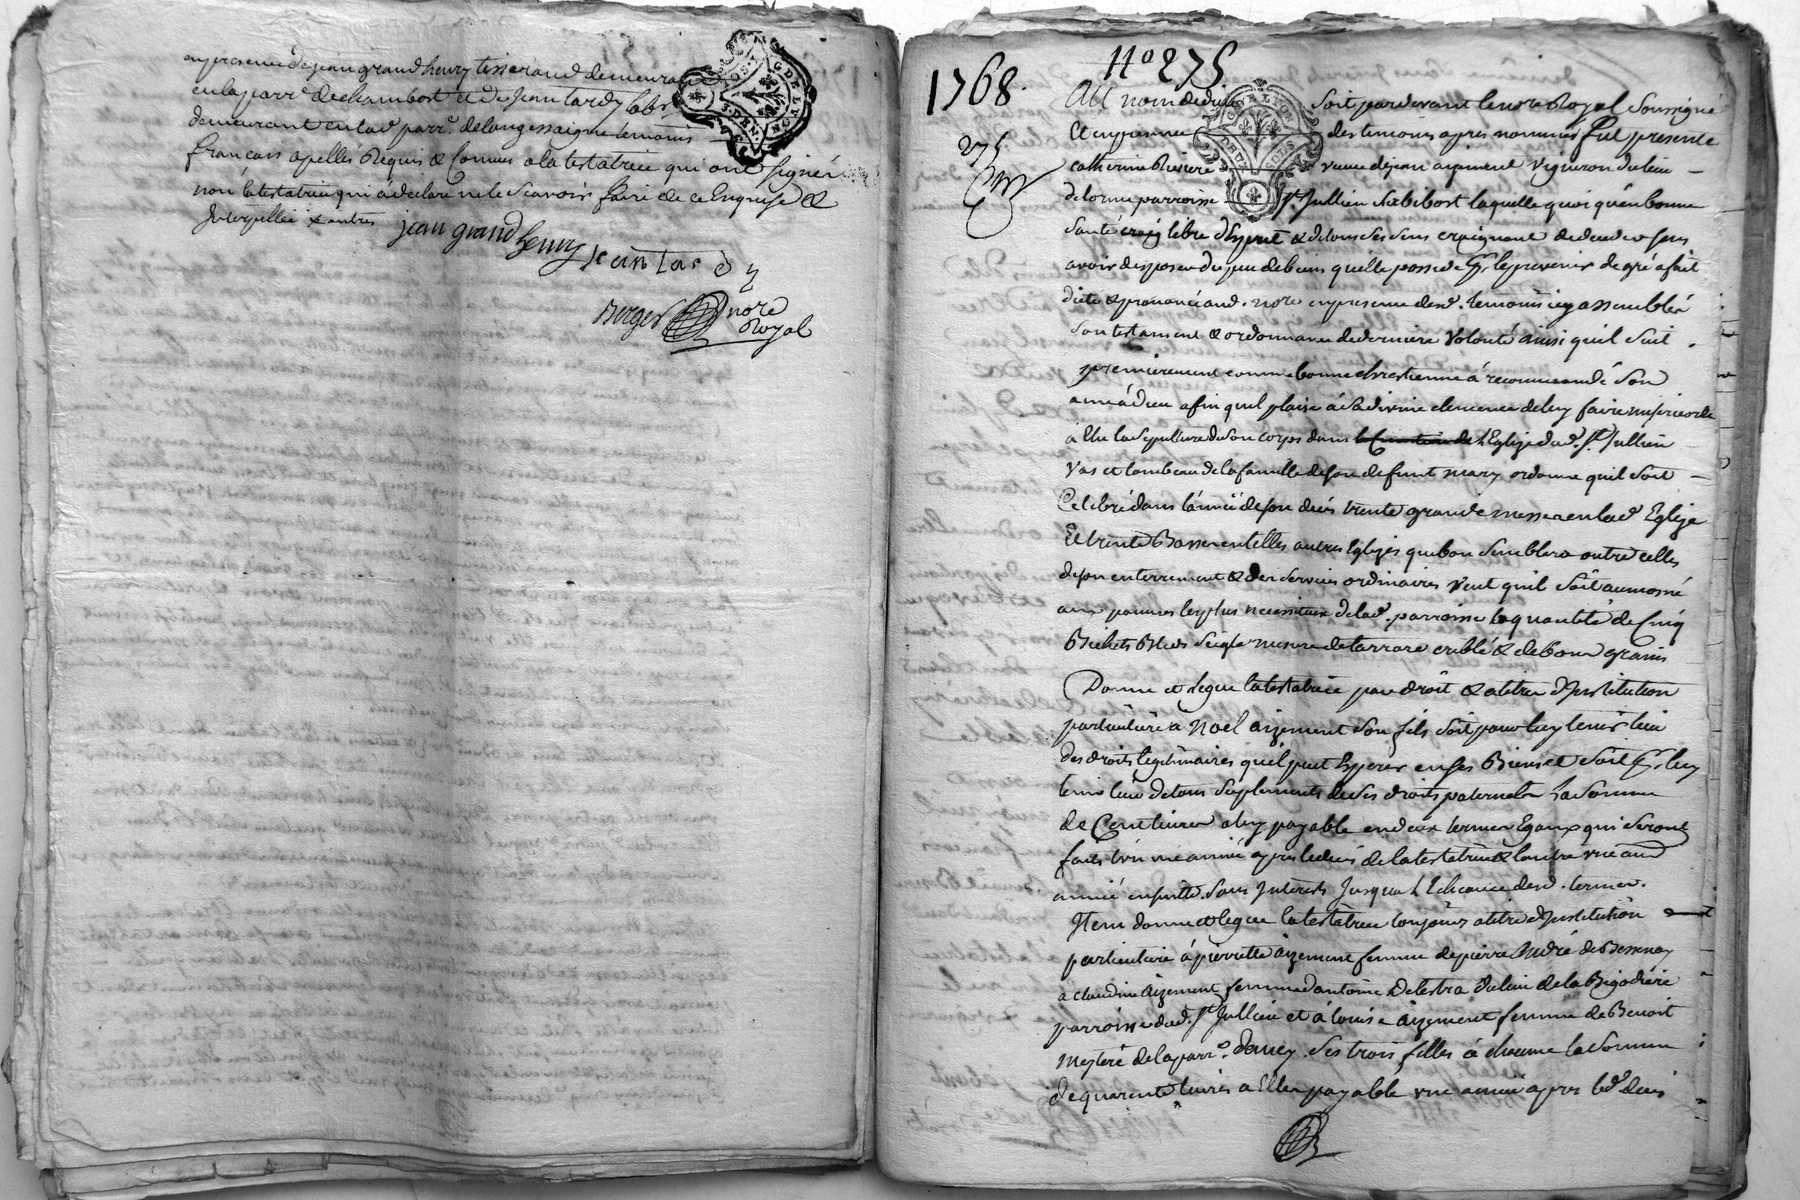 en presence de jean grand henry tisserand demeurant
en la parr.e de chambost et de Jean tardy
demeurant en lad. parr.e de longessaigne temoins
francois apellés Requis & connus a la testatrice qui ont signé
non la testatrice qui a declaré ne le scavoir faire de ce Enquise &
Interpellée & autres jean grand henry jean tardy
Berger nore
Royal
1768.
No 275
275
Au nom de dieu soit pardevant le nore Royal soussigné
et en presence des temoins apres nommés fut presente
catherine veuve de jean aizement vigneron du lieu
de parroisse St. Jullien Sur bibost laquelle quoi qu'en bonne
santé libre d'Esprit & de tous ses sens craignant de deceder sans
avoir disposer du peu de biens qu'elle possede p.r le prevenir de gré a fait
dicté & prononcé aud. nore en presence desd. temoins icy assemblés
son testament & ordonnance de derniere volonté ainsi qu'il suit
premierement comme bonne chrestienne á recommandé son
ame á dieu afin quil plaise á sa divine clemence de luy faire misericorde
á Elu la sepulture de son corps dans l'Eglize dud. St. Jullien
vas et tombeau de la famille de son defunt mary ordonne quil soit
Celebré dans l'année de son deces trente grandes messes en lad. Eglize
et trente Basses en telles autres Eglizes que bon semblera outre celles
de son enterrement & des services ordinaires veut qu'il soit aumosné
aux pauvres les plus necessiteux de lad. parroisse la quantité de Cinq
Bichets Bleds seigle mesure de tarrare criblé & de bons grains
Donne et legue la testatrice par droit & a titre d'Institution
particuliere a Noel aizement son fils soit pour luy tenir lieu
des droits legitimaires quil peut Esperer en ses Biens et soit p.r luy
tenir lieu de tous suplements de ses droits paternels la somme
de Cent livres a luy payable en deux termes Egaux qui seront
faits l'un une année apres le deces de la testatrice & l'autre une aud.
année ensuitte sans Interets Jusqua l'Echeance desd. termes.
Item donne & legue la testatrice toujours a titre d'Institution
particuliere á pierrette aizement femme de pierre André de Bessenay
a claudine aizement femme d'antoine Delestra du lieu de la Bigodiere
parroisse dud. St Jullien et á louise aizement femme de Benoit
de la parr.e d'ancy ses trois filles á chacune la somme
de quarente livres a Elles payable une année apres led. deces